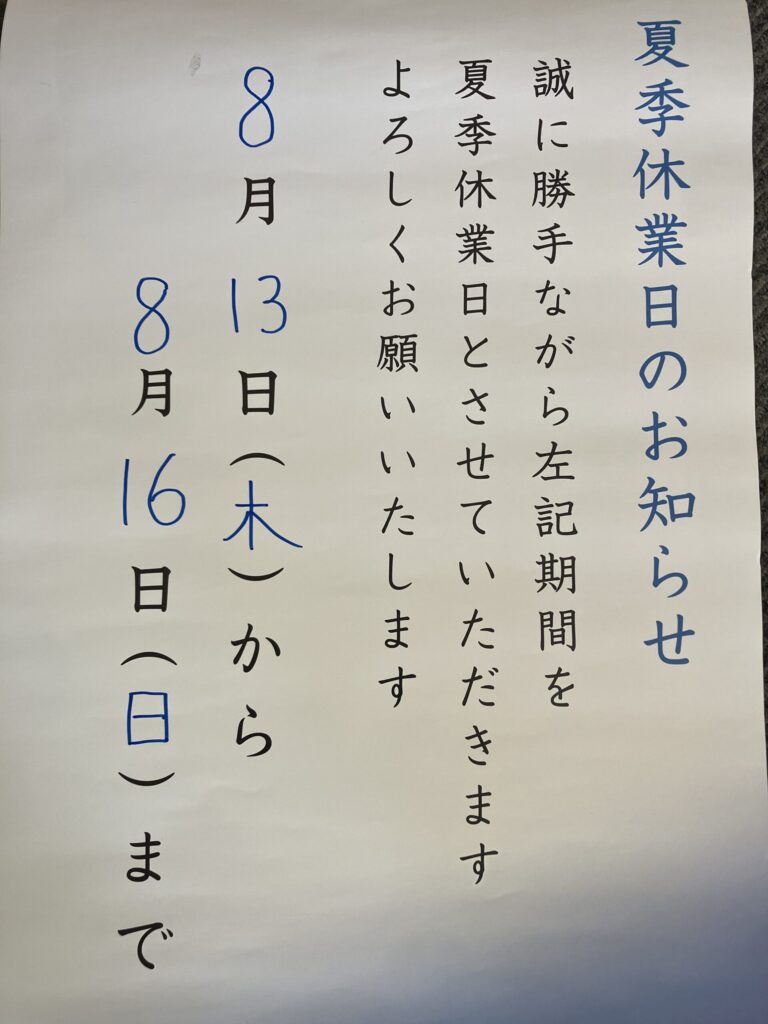 夏季休業日のお知らせ
誠に勝手ながら左記期間を
夏季休業日とさせていただきます
よろしくお願いいたします
8月13日(木)から
8月16日(日)まで